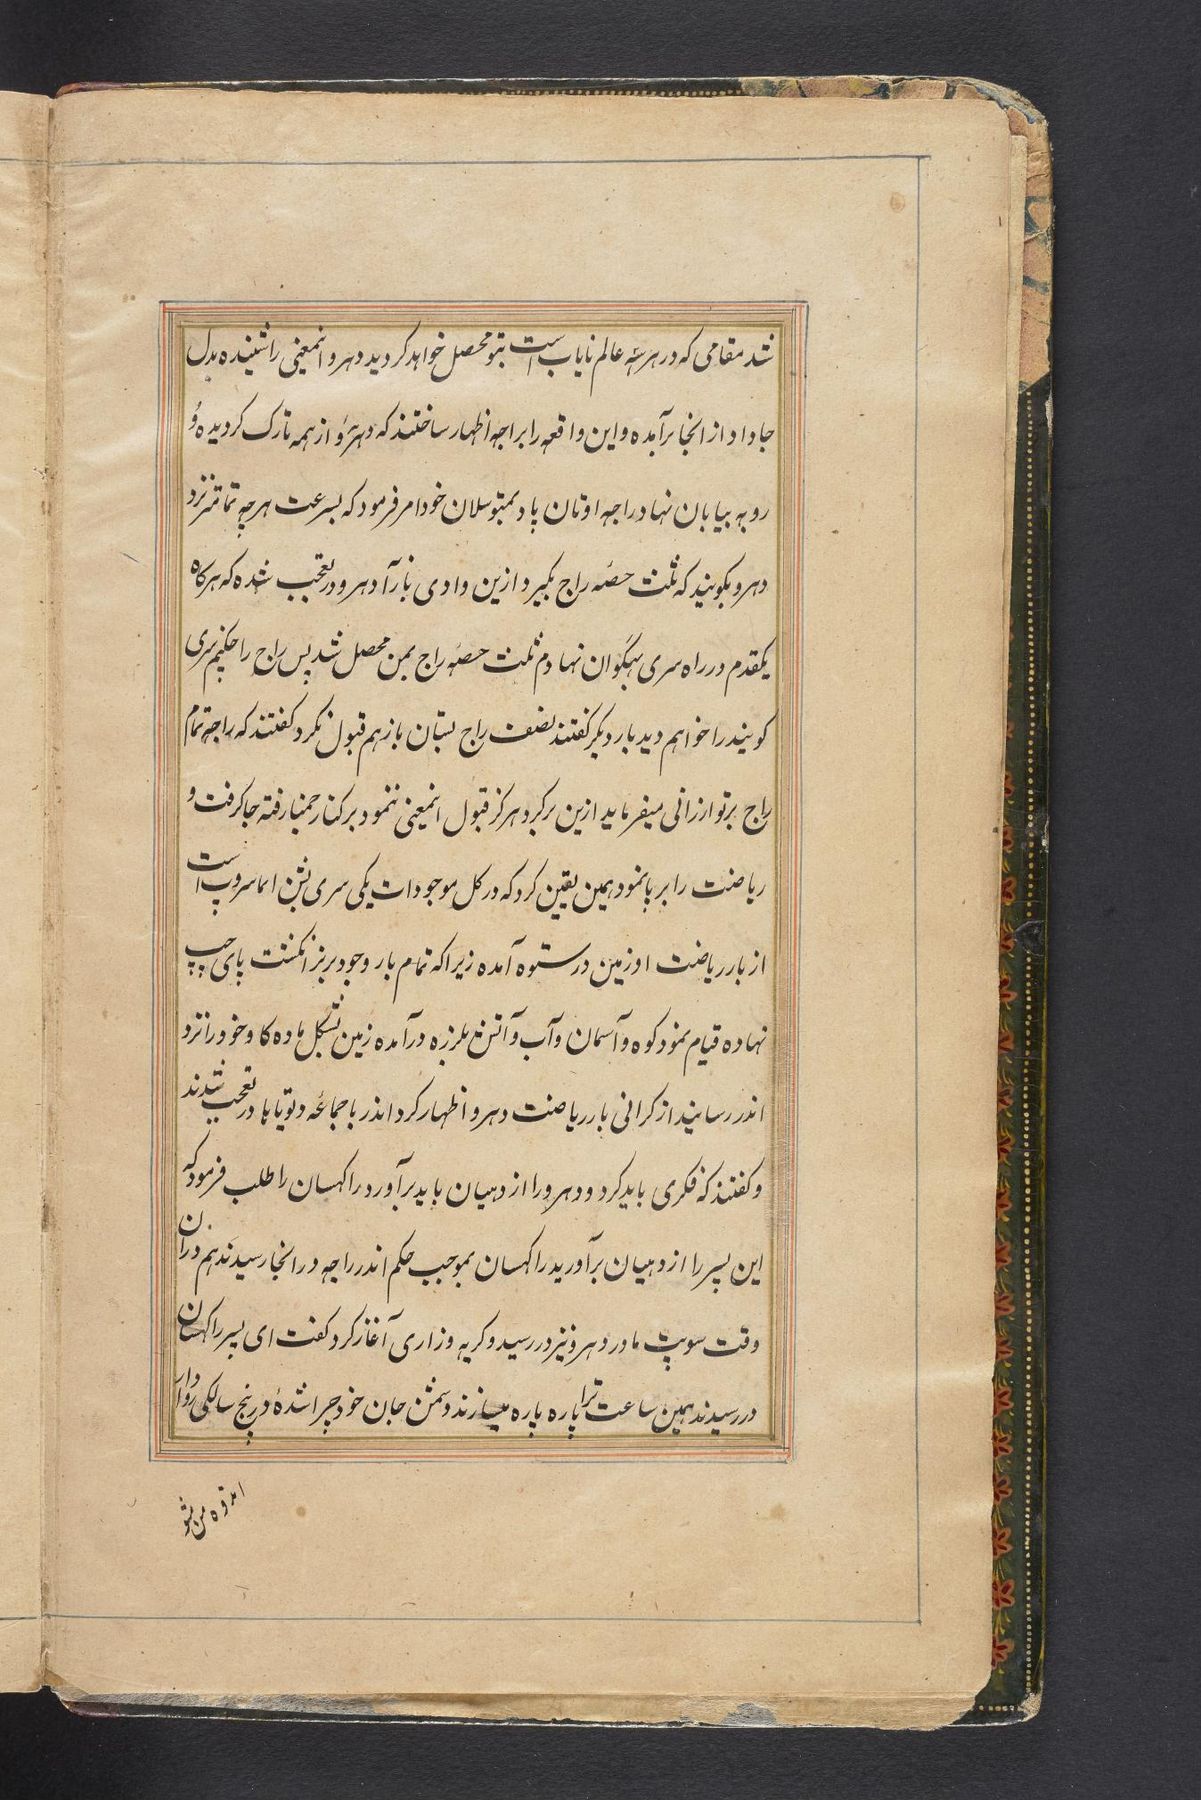 شد مقامی که در هر سه عالم نایاب است بتو محصل خواهد کردید دهرو اینمعنی را شنیده بدل
جا داد از انجا برآمده و این واقعه را براجه اظهار ساختند که دهرو از همه تارک کردیده و
رو به بیابان نهاد راجه اوتان پاد بمتوسلان خود امر فرمود که بسرعت هر چه تمامتر نزد
دهرو بکویند که ثلث حصه راج بکیرد ازین وادی باز آ دهرو در تعجب شده که هرکاه
یکقدم در راه سری بهکوان نهادم ثلث حصه راج بمن محصل شد پس راج را چکنم سری
کوبند را خواهم دید بار دیکر کفتند نصف راج بستان باز هم قبول نکرد کفتند که راجه تمام
راج بر تو ارزانی میفرماید ازین برکرد هرکز قبول اینمعنی ننمود بر کنار جمنا رفته جا کرفت و
ریاضت را بر پا نمود همین یقین کرد که در کل موجودات یکی سری بشن اتماسروپ است
از بار ریاضت او زمین در ستوه آمده زیرا که تمام بار وجود بر نر انکشت پای چپ
نهاده قیام نمود کوه و آسمان و آب و آتش بلرزه درآمده زمین بشکل ماده کاو خود را نزد
اندر رسانید از کرانی بار ریاضت دهرو اظهار کرد اندر با جماعه دیوتاها در تعجب شدند
و کفتند که فکری باید کرد و دهرو را از دهیان باید برآورد راکهسان را طلب فرمود که
این پسر را از دهیان برآورید راکهسان بموجب حکم اندر راجه در انجا رسیدند هم دران
وقت سوپت مادر دهرو نیز در رسید و کریه و زاری آغاز کرد کفت ای پسر راکهسان
در رسیدند همین ساعت ترا پاره پاره میسازند دشمن جان خود چرا شدهٔ در پنج سالکی